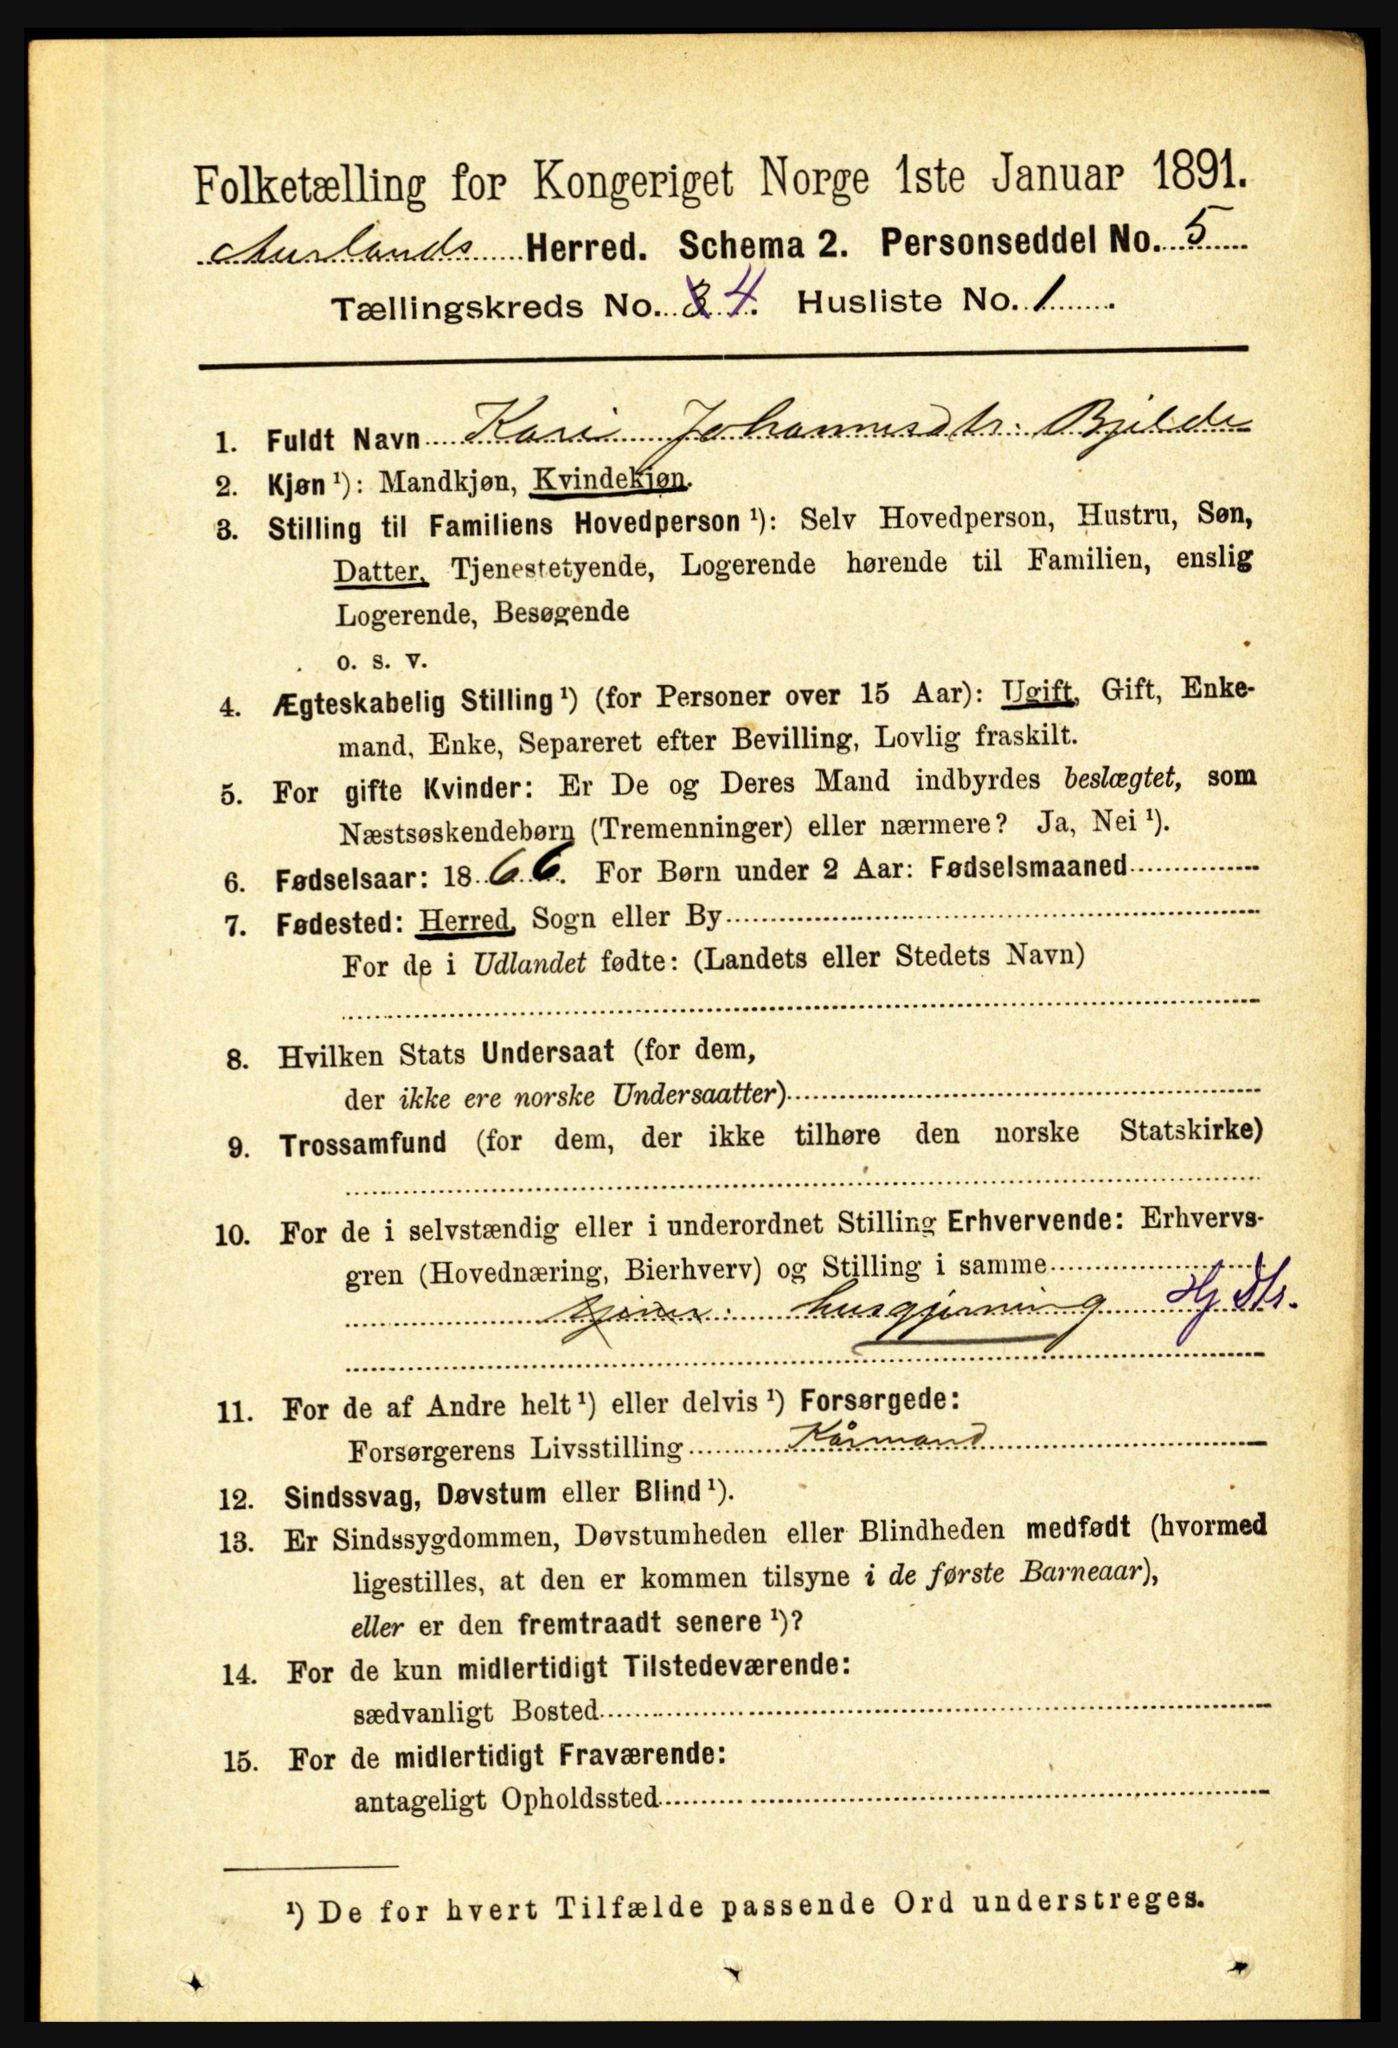 Folketælling for Kongeriget Norge 1ste Januar 1891.
Aurlands Herred. Schema 2. Personseddel No. 5
Tællingskreds No. 3 4. Husliste No. 1
1. Fuldt Navn Kari Johannesdtr. Bjelde
2. Kjøn ¹): Mandkjøn, Kvindekjøn.
3. Stilling til Familiens Hovedperson ¹): Selv Hovedperson, Hustru, Søn,
Datter, Tjenestetyende, Logerende hørende til Familien, enslig
Logerende, Besøgende
o. s. v.
4. Ægteskabelig Stilling ¹) (for Personer over 15 Aar): Ugift, Gift, Enke-
mand, Enke, Separeret efter Bevilling, Lovlig fraskilt.
5. For gifte Kvinder: Er De og Deres Mand indbyrdes beslægtet, som
Næstsøskendebørn (Tremenninger) eller nærmere? Ja, Nei ¹).
6. Fødselsaar: 1866. For Børn under 2 Aar: Fødselsmaaned
7. Fødested: Herred, Sogn eller By
For de i Udlandet fødte: (Landets eller Stedets Navn)
8. Hvilken Stats Undersaat (for dem,
der ikke ere norske Undersaatter)
9. Trossamfund (for dem, der ikke tilhøre den norske Statskirke)
10. For de i selvstændig eller i underordnet Stilling Erhvervende: Erhvervs-
gren (Hovednæring, Bierhverv) og Stilling i samme
husgjerning Hj Dtr.
11. For de af Andre helt ¹) eller delvis ¹) Forsørgede:
Forsørgerens Livsstilling Kårmand
12. Sindssvag, Døvstum eller Blind ¹).
13. Er Sindssygdommen, Døvstumheden eller Blindheden medfødt (hvormed
ligestilles, at den er kommen tilsyne i de første Barneaar),
eller er den fremtraadt senere ¹)?
14. For de kun midlertidigt Tilstedeværende:
sædvanligt Bosted
15. For de midlertidigt Fraværende:
antageligt Opholdssted
¹) De for hvert Tilfælde passende Ord understreges.